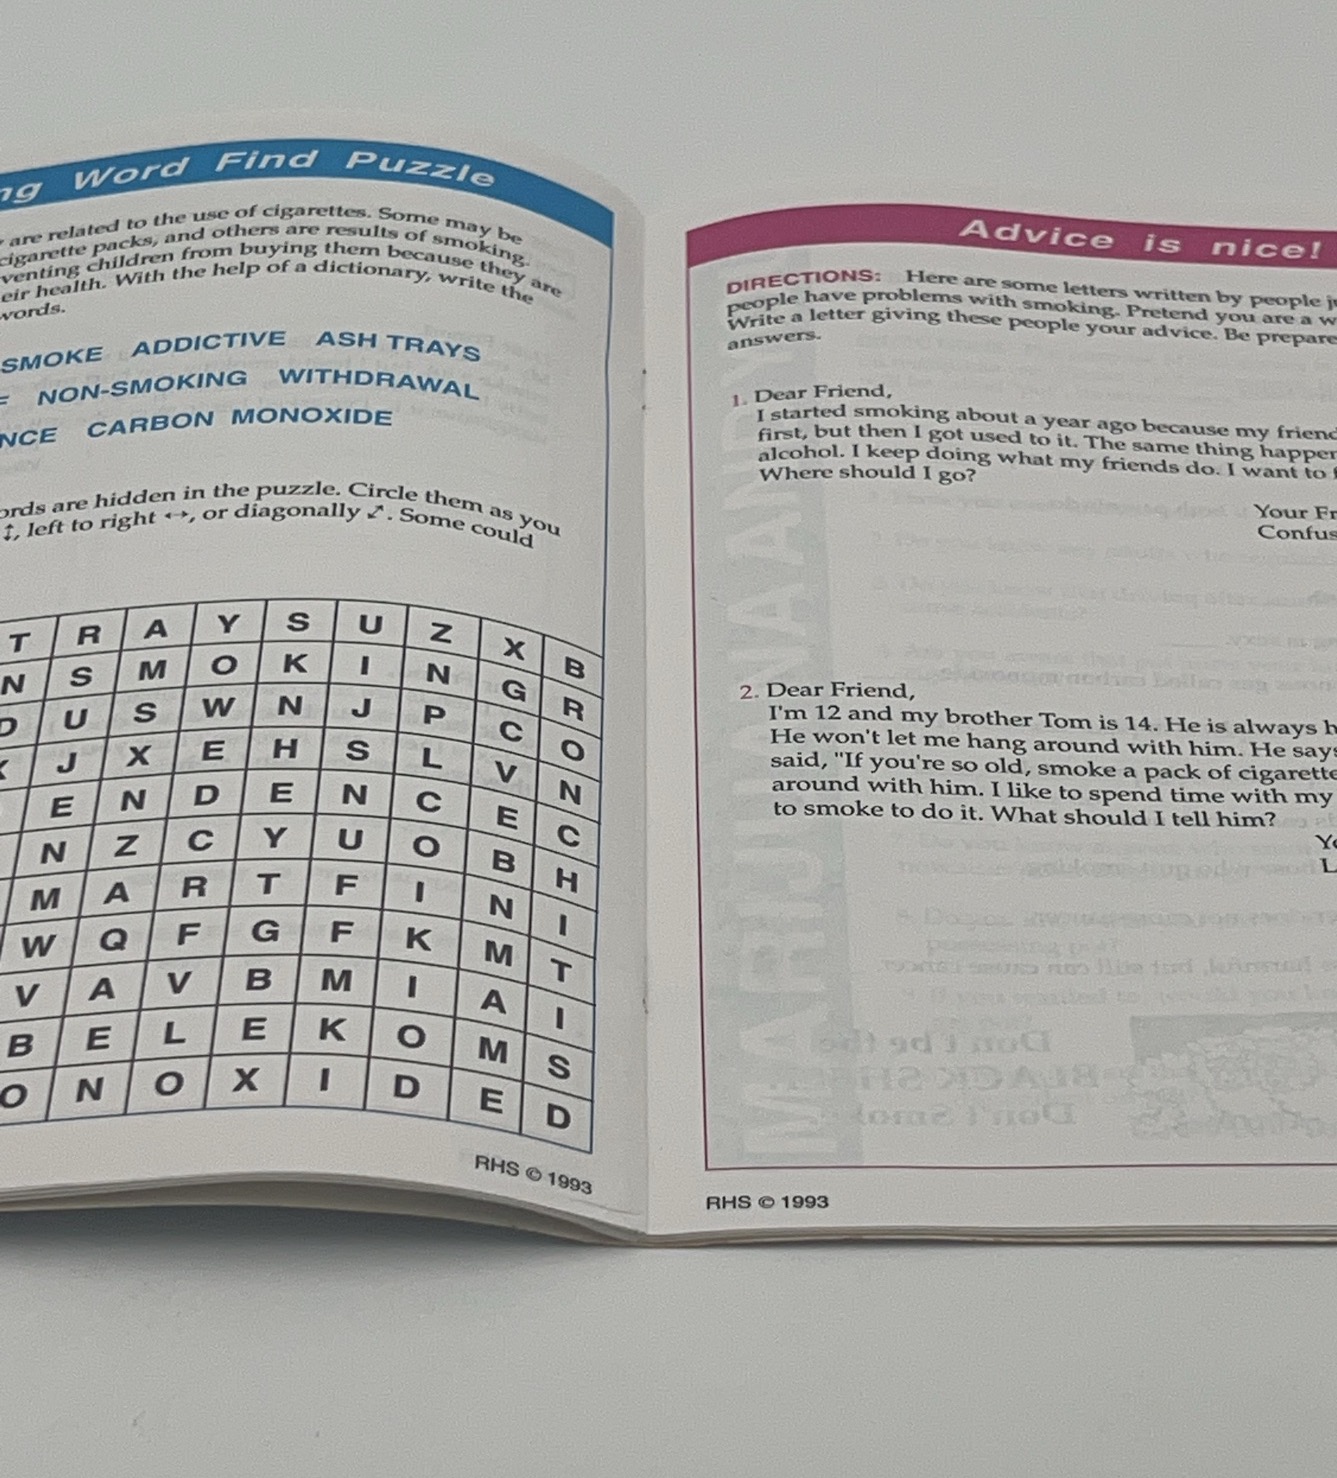 Word Find Puzzle
are related to the use of cigarettes. Some may be
cigarette packs, and others are results of smoking.
venting children from buying them because they are
eir health. With the help of a dictionary, write the
words.
SMOKE ADDICTIVE ASH TRAYS
NON-SMOKING WITHDRAWAL
NCE CARBON MONOXIDE
ords are hidden in the puzzle. Circle them as you
↕, left to right ↔, or diagonally ⤢. Some could
T R A Y S U Z X B
N S M O K I N G R
D U S W N J P C O
J X E H S L V N
E N D E N C E C
N Z C Y U O B H
M A R T F I N I
W Q F G F K M T
V A V B M I A I
B E L E K O M S
O N O X I D E D
RHS © 1993
Advice is nice!
DIRECTIONS: Here are some letters written by people
people have problems with smoking. Pretend you are a w
Write a letter giving these people your advice. Be prepare
answers.
1. Dear Friend,
I started smoking about a year ago because my friend
first, but then I got used to it. The same thing happen
alcohol. I keep doing what my friends do. I want to
Where should I go?
Your Fr
Confus
2. Dear Friend,
I'm 12 and my brother Tom is 14. He is always h
He won't let me hang around with him. He says
said, "If you're so old, smoke a pack of cigarette
around with him. I like to spend time with my
to smoke to do it. What should I tell him?
Yo
L
RHS © 1993